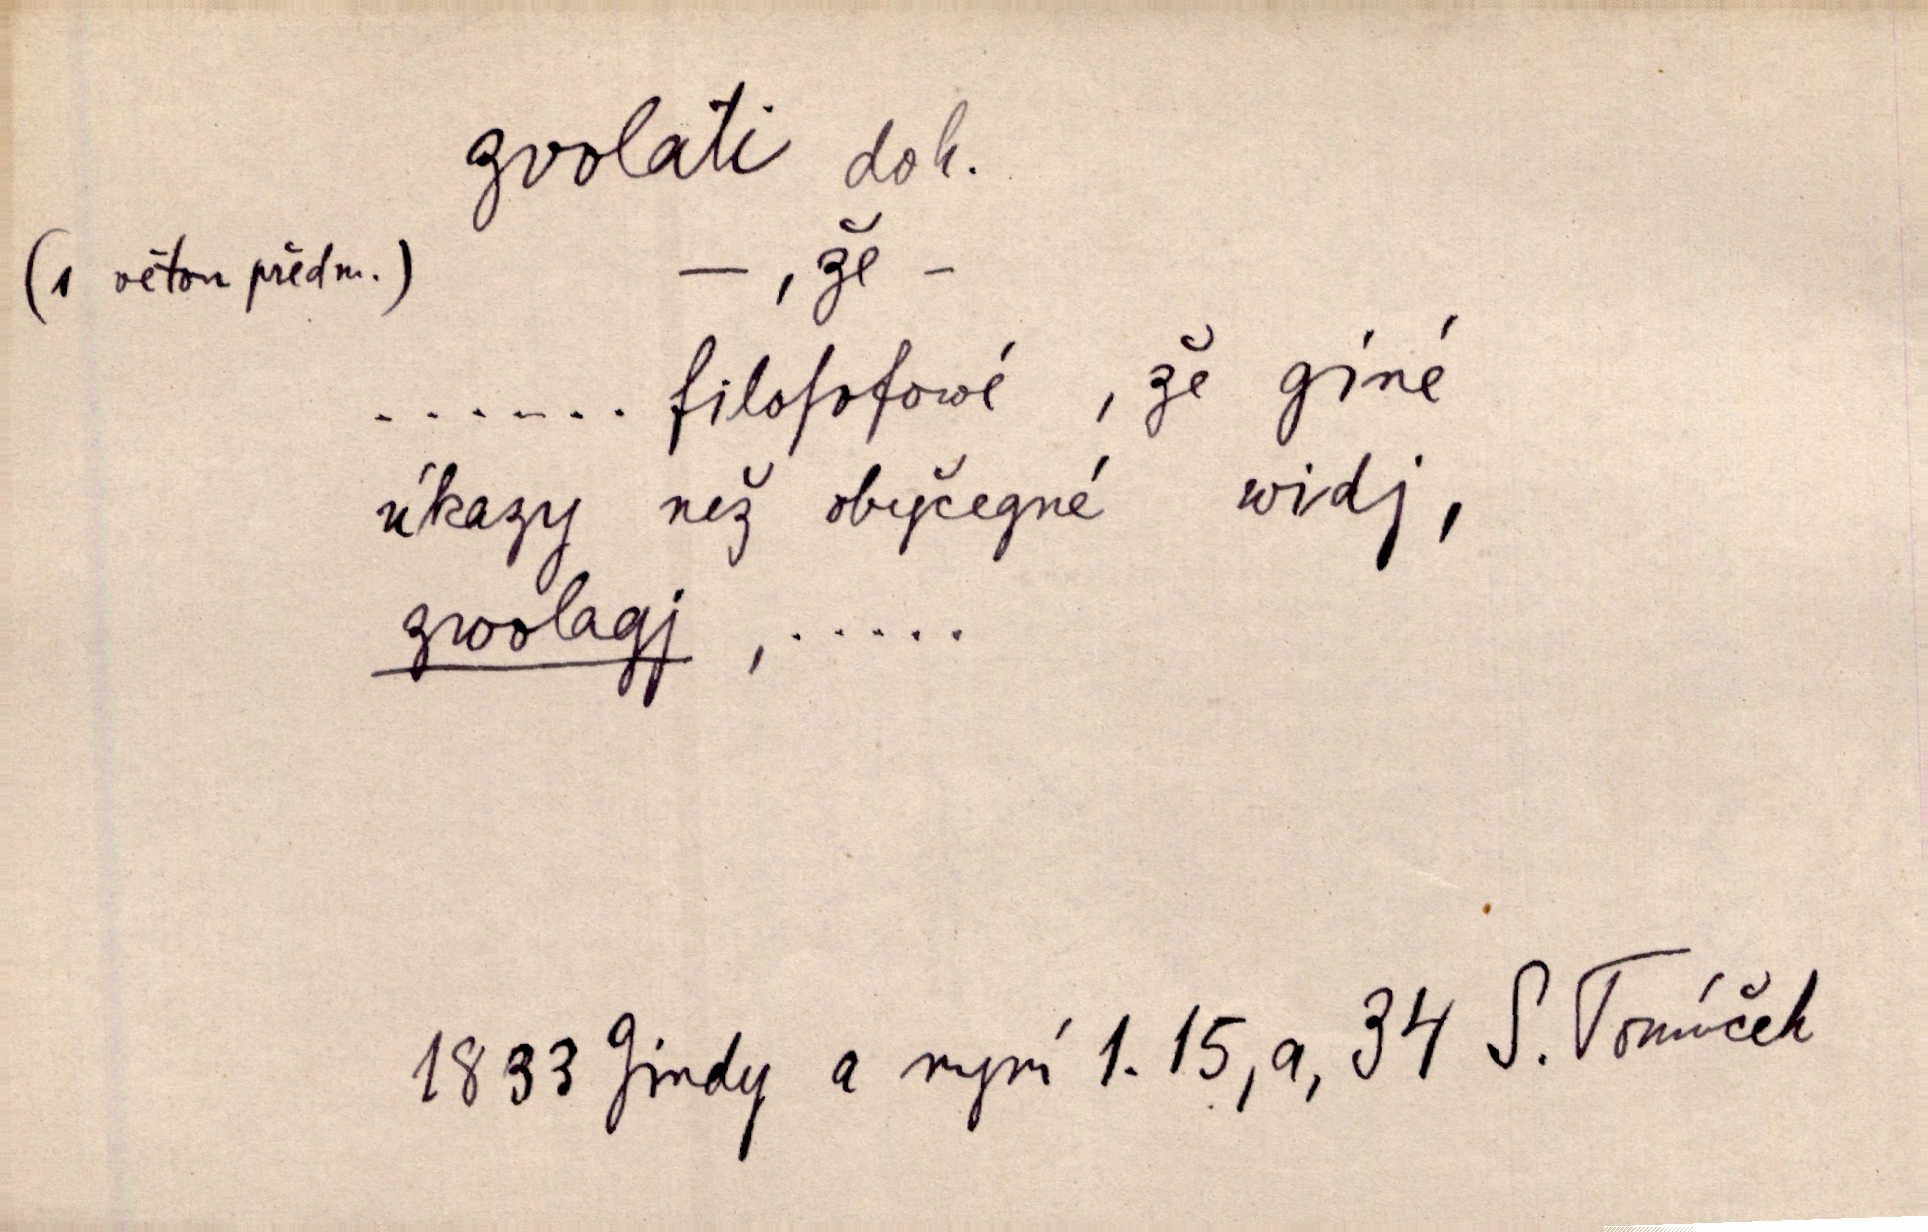 zvolati dok.
(1 větou předm.) — , že –
....... filosofowé , že giné
úkazy než obyčegné widj,
zwolagj , .....
1833 Jindy a nyní 1. 15, a, 34 S. Tomíček